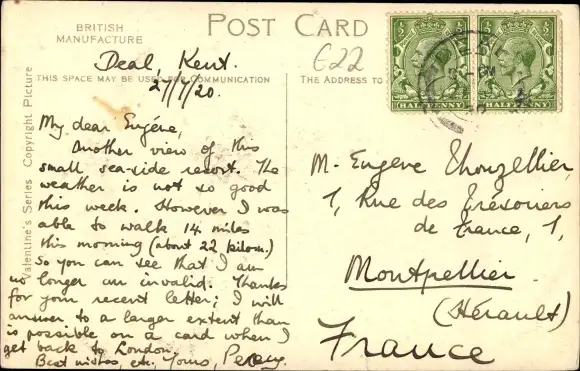 BRITISH
MANUFACTURE
POST CARD
622
THIS SPACE MAY BE USED FOR COMMUNICATION
THE ADDRESS TO
Valentine's Series Copyright Picture
Deal, Kent.
27/7/20.
My dear Eugène,
Another view of this
small sea-side resort. The
weather is not so good
this week. However I was
able to walk 14 miles
this morning (about 22 kilom.)
So you can see that I am
no longer an invalid. Thanks
for your recent letter; I will
answer to a larger extent than
is possible on a card when I
get back to London.
Best wishes, etc. Yours, Percy.
½ ½
½ ½
HALFPENNY
HALFPENNY
M. Eugène Thouzellier,
1, Rue des Trésoriers
de France, 1,
Montpellier
(Hérault)
France